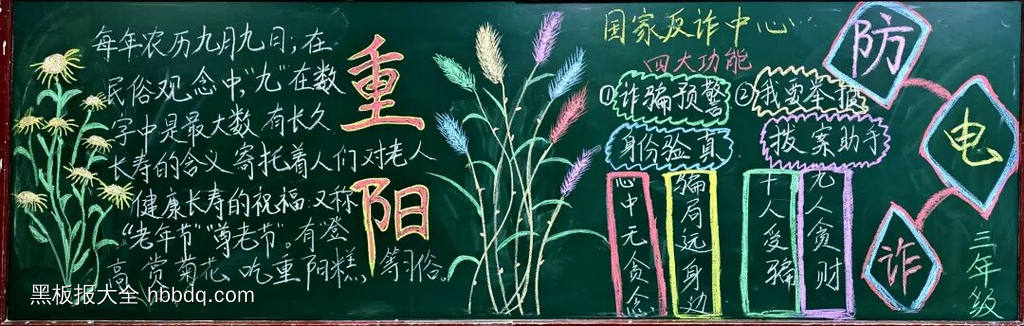 每年农历九月九日，在
民俗观念中，"九"在数
字中是最大数 有长久
长寿的含义 寄托着人们对老人
健康长寿的祝福 又称
"老年节""尊老节"。有登
高 赏菊花 吃重阳糕，等习俗。
重阳
国家反诈中心
四大功能
①诈骗预警
②我要举报
身份验真
拨案助手
心中无贪念
骗局远身边
十人受骗
九人贪财
防电诈
三年级
黑板报大全 hbbdq.com